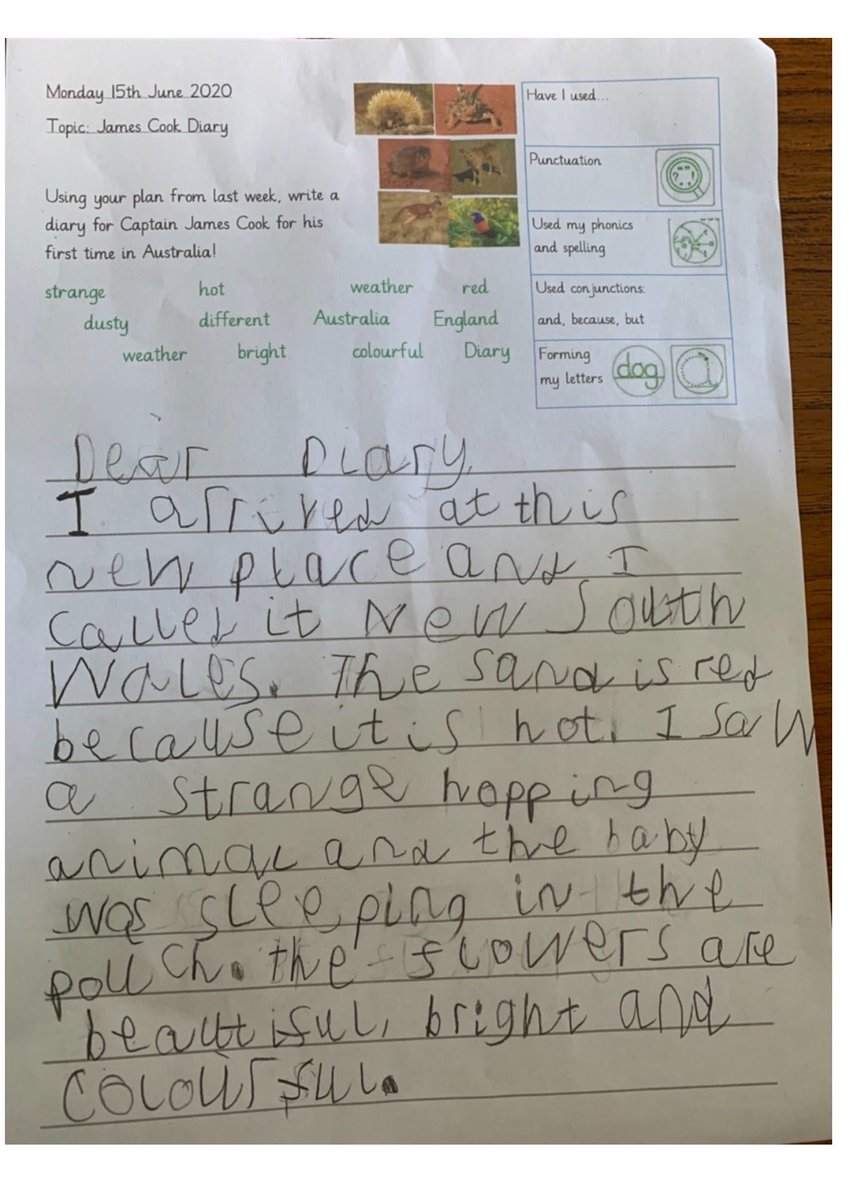 Monday 15th June 2020
Topic: James Cook Diary
Using your plan from last week, write a
diary for Captain James Cook for his
first time in Australia!
strange hot weather red
dusty different Australia England
weather bright colourful Diary
Have I used...
Punctuation
Used my phonics
and spelling
Used conjunctions:
and, because, but
Forming
my letters
dog
Dear Diary,
I arrived at this
new place and I
called it New South
Wales. The sand is red
because it is hot. I saw
a strange hopping
animal and the baby
was sleeping in the
pouch. the flowers are
beautiful, bright and
colourful.